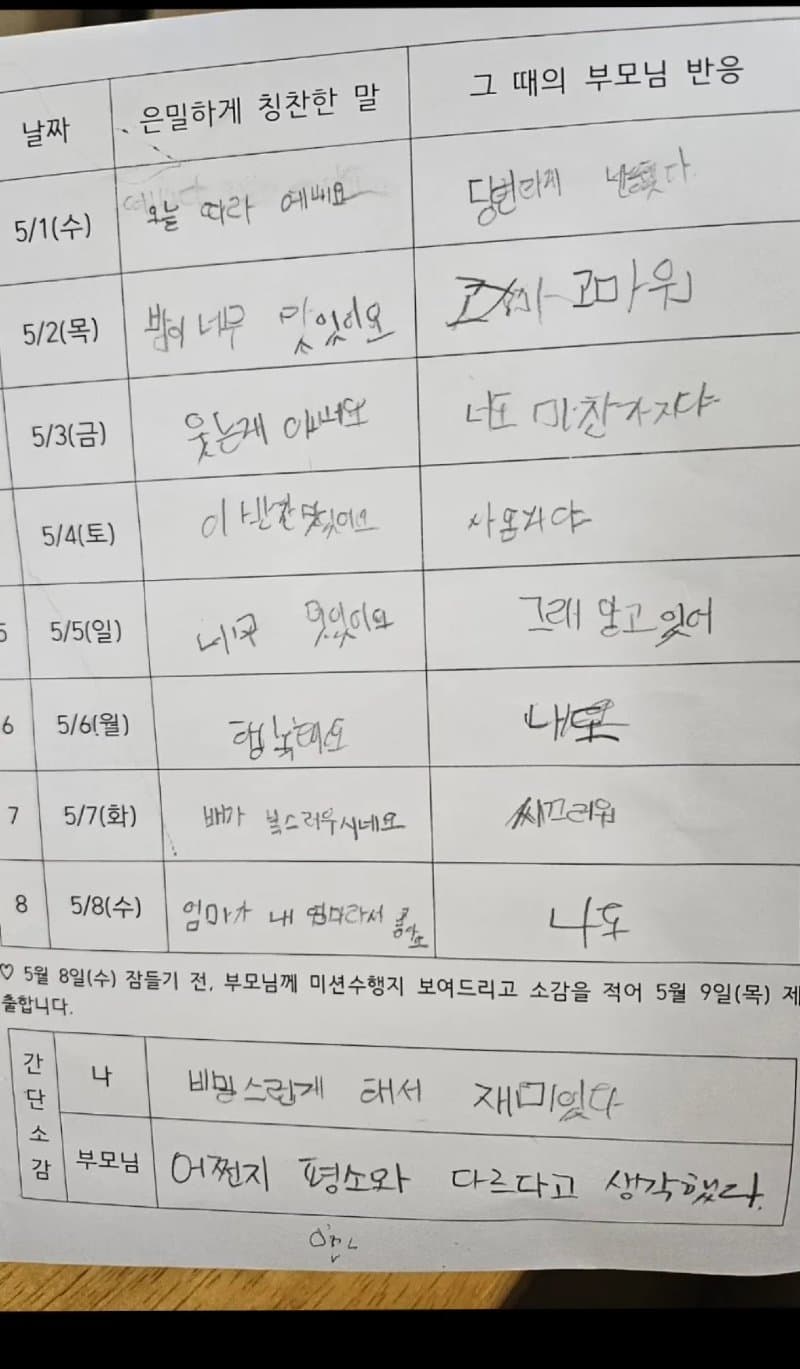 날짜 은밀하게 칭찬한 말 그 때의 부모님 반응
5/1(수) 오늘 따라 예뻐요
5/2(목) 밥이 너무 맛있어요 고마워
5/3(금) 웃는게 너도 마찬가지야
5/4(토) 이 반찬 맛있어요
5 5/5(일) 그래 알고 있어
6 5/6(월) 행복해요
7 5/7(화) 배가 복스러우시네요 씨끄러워
8 5/8(수) 엄마가 내 엄마라서 좋아요 나도
♡ 5월 8일(수) 잠들기 전, 부모님께 미션수행지 보여드리고 소감을 적어 5월 9일(목) 제
출합니다.
간단소감
나 비밀스럽게 해서 재미있다
부모님 어쩐지 평소와 다르다고 생각했다.